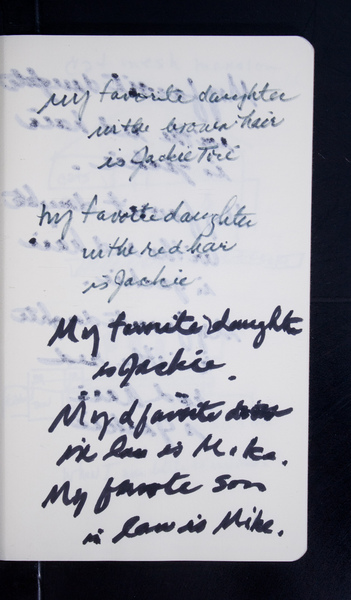 my favorite daughter
in the brown hair
is Jackie
my favorite daughter
in the red hair
is Jackie
My favorite daughter
is Jackie.
My d favorite
in law is Mike.
My favorite son
in law is Mike.